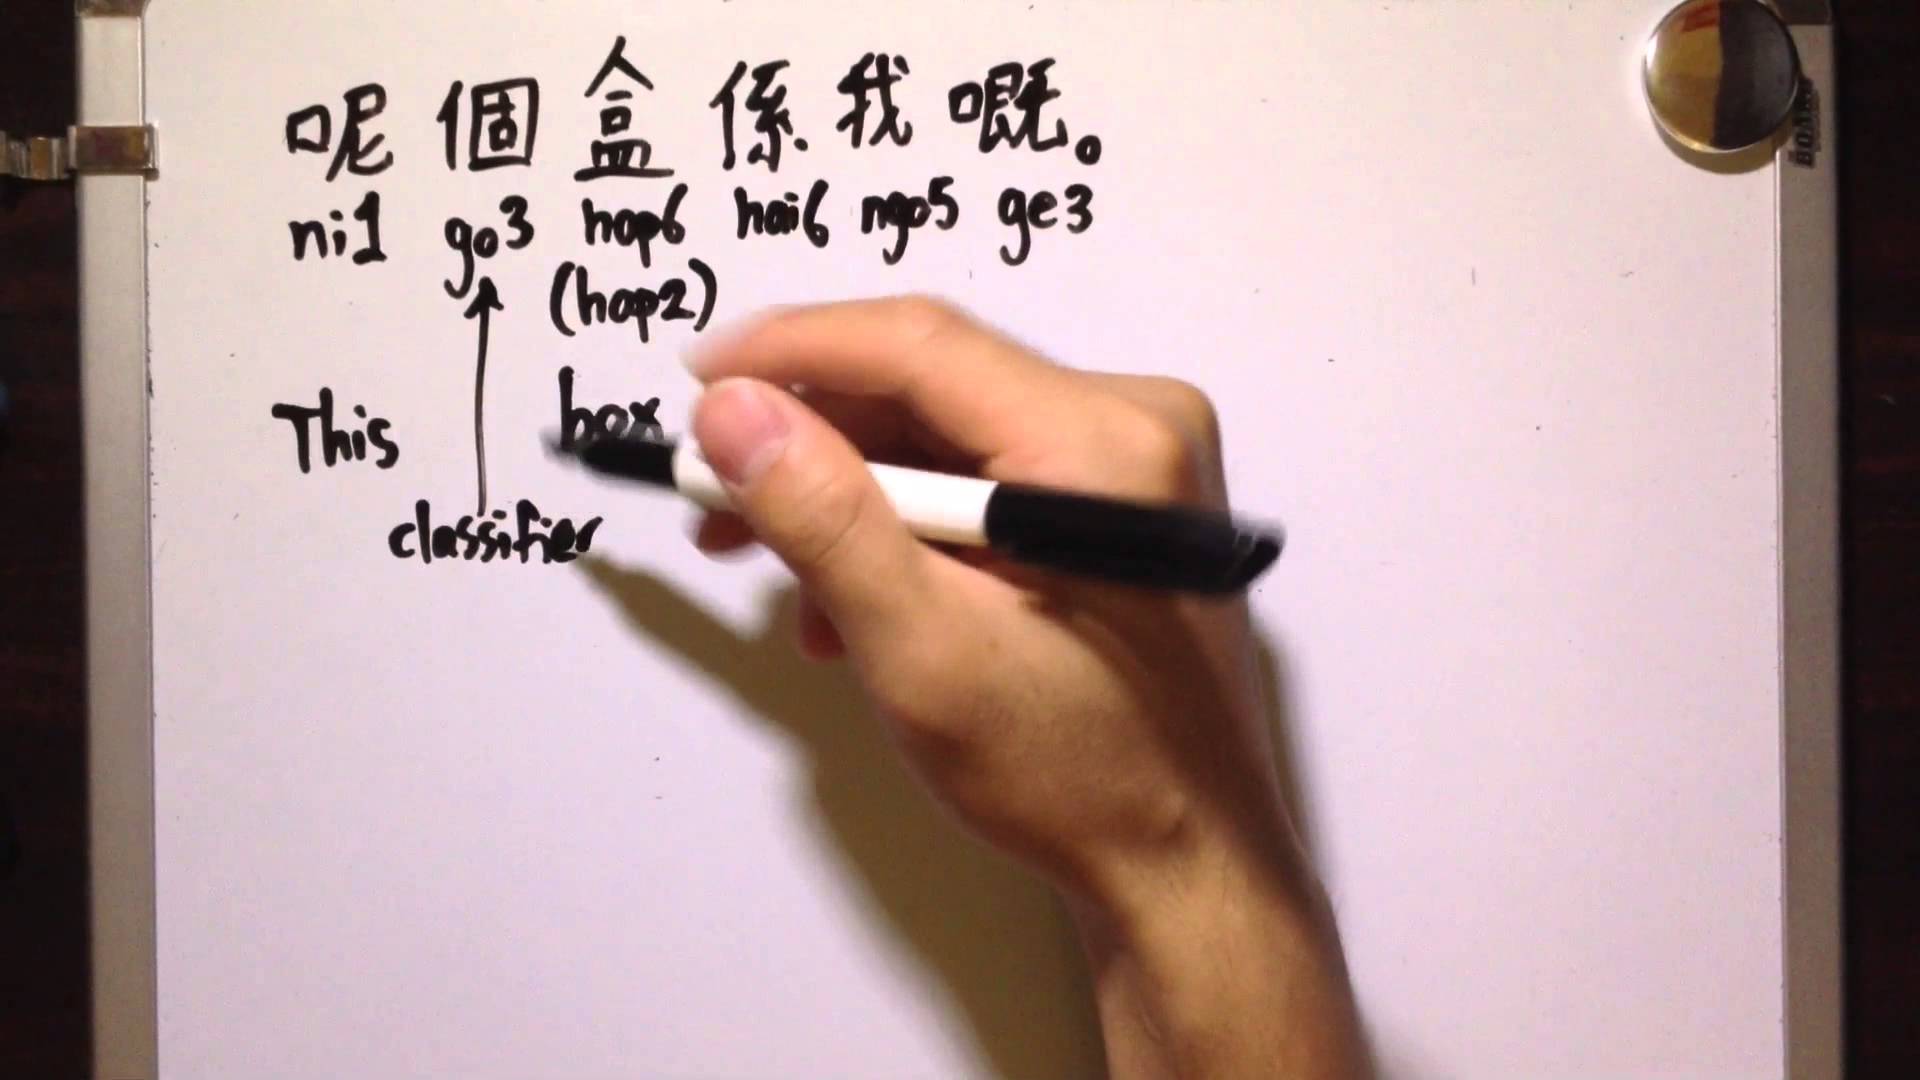 呢個盒係我嘅。
ni1 go3 hop6 hai6 ngo5 ge3
(hop2)
This box
classifier